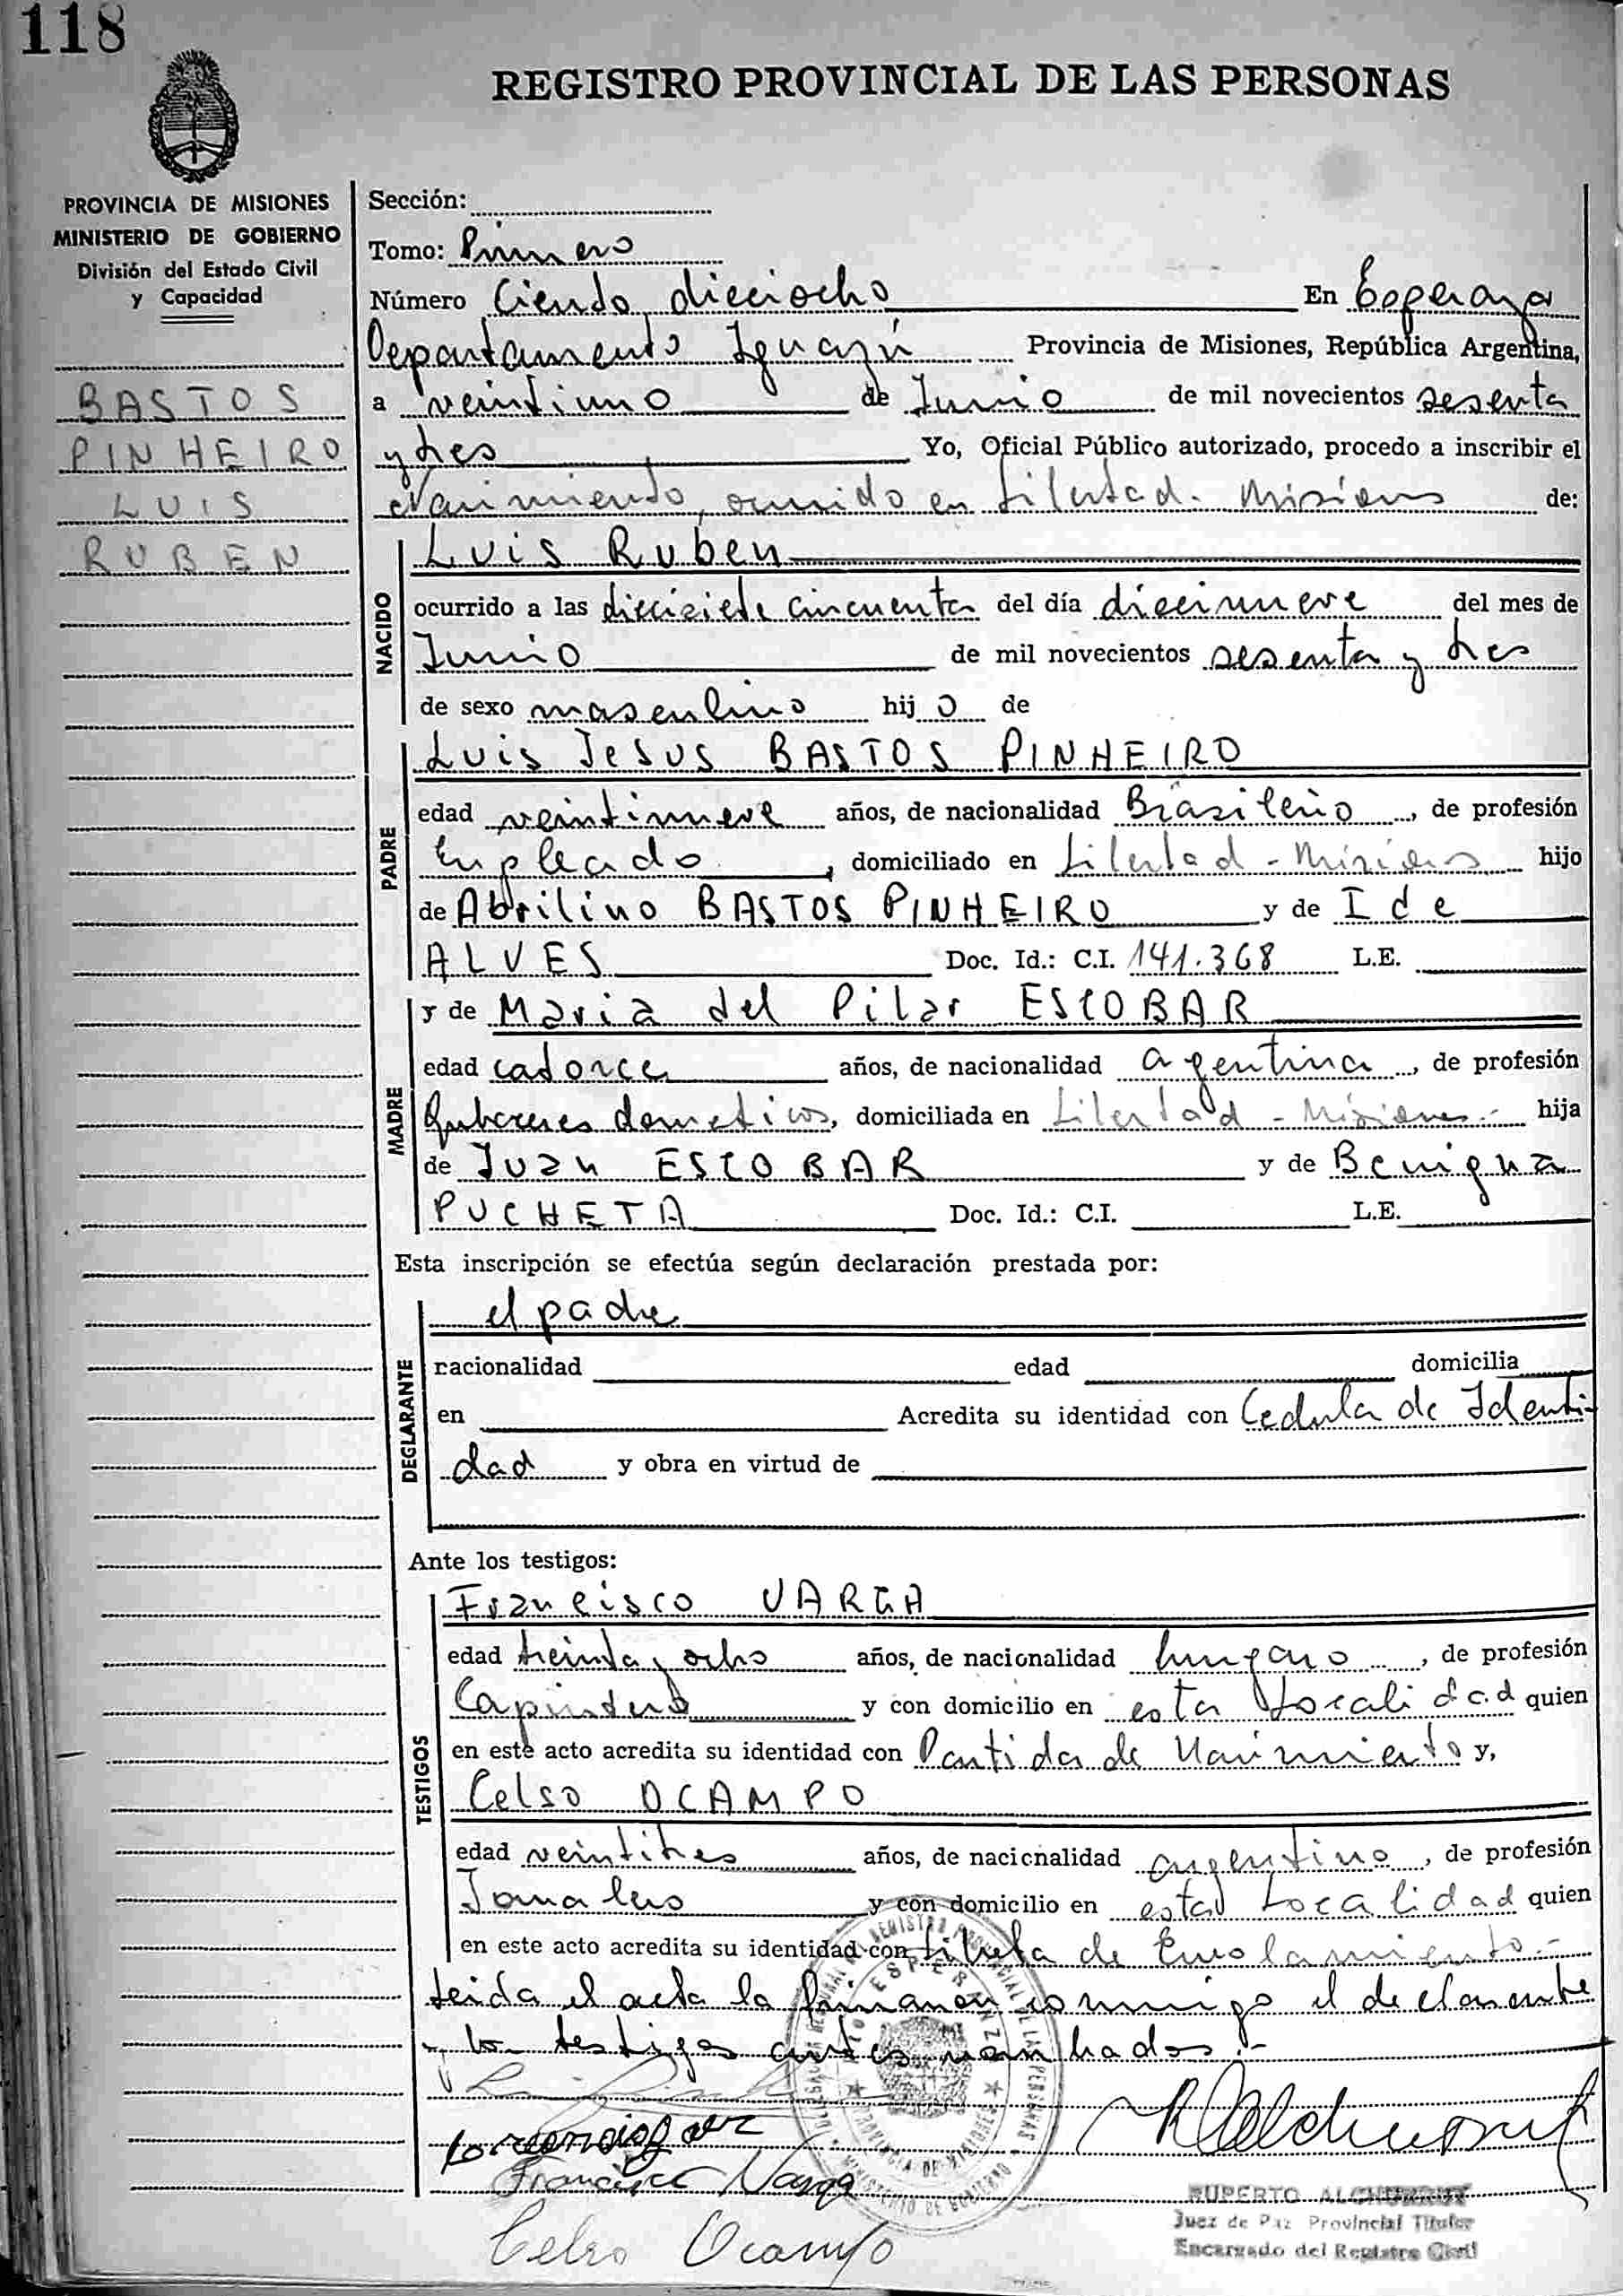 118
REGISTRO PROVINCIAL DE LAS PERSONAS
PROVINCIA DE MISIONES
MINISTERIO DE GOBIERNO
División del Estado Civil
y Capacidad
BASTOS
PINHEIRO
LUIS
RUBEN
Sección:
Tomo: Primero
Número Ciento dieciocho En Esperanza
Departamento Iguazú Provincia de Misiones, República Argentina,
a veintiuno de Junio de mil novecientos sesenta
y tres Yo, Oficial Público autorizado, procedo a inscribir el
Nacimiento, ocurrido en Libertad. Misiones de:
NACIDO
Luis Ruben
ocurrido a las diecisiete cincuenta del día diecinueve del mes de
Junio de mil novecientos sesenta y tres
de sexo masculino hijo de
PADRE
Luis Jesus BASTOS PINHEIRO
edad veintinueve años, de nacionalidad Brasileño, de profesión
Empleado, domiciliado en Libertad - Misiones hijo
de Abrilino BASTOS PINHEIRO y de Ide
ALVES Doc. Id.: C.I. 141.368 L.E.
MADRE
y de Maria del Pilar ESCOBAR
edad catorce años, de nacionalidad argentina, de profesión
Quehaceres dometicos, domiciliada en Libertad - Misiones.- hija
de Juan ESCOBAR y de Benigna
PUCHETA Doc. Id.: C.I. L.E.
Esta inscripción se efectúa según declaración prestada por:
DECLARANTE
el padre
nacionalidad edad domicilia
en Acredita su identidad con Cedula de Identi-
dad y obra en virtud de
Ante los testigos:
TESTIGOS
Francisco VARGA
edad treinta y ocho años, de nacionalidad hungaro, de profesión
Carpintero y con domicilio en esta Localidad quien
en este acto acredita su identidad con Partida de Nacimiento y,
Celso OCAMPO
edad veintitres años, de nacionalidad argentino, de profesión
Jornalero y con domicilio en esta Localidad quien
en este acto acredita su identidad con Libreta de Enrolamiento.-
Leida el acta la firman conmigo el declarante
y los testigos antes nombrados.-
Francisco Varga
Celso Ocampo
RUPERTO
Juez de Paz Provincial Titular
Encargado del Registro Civil